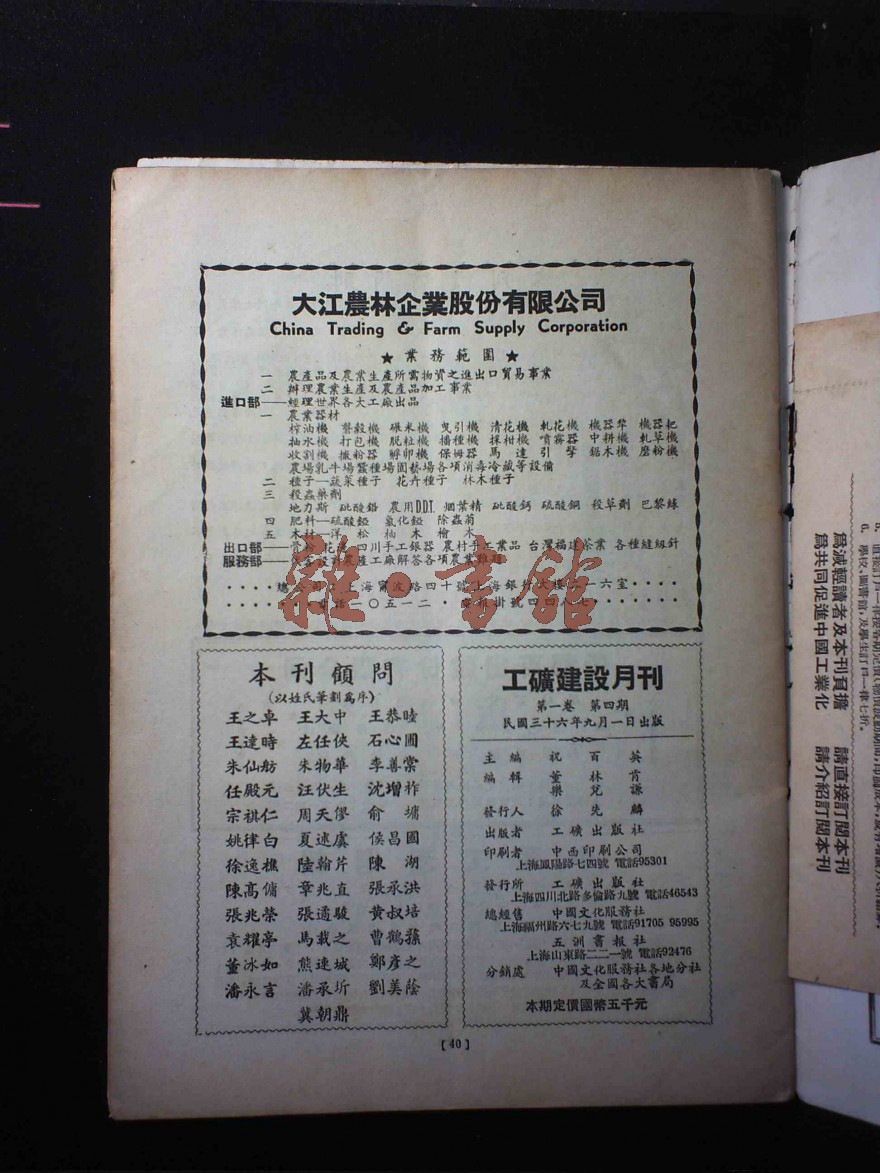 大江農林企業股份有限公司
China Trading & Farm Supply Corporation
★業務範圍★
一 農產品及農業生產所需物資之進出口貿易事業
二 辦理農業生產及農產品加工事業
進口部——經理世界各大工廠出品
一 農業器材
榨油機 礱穀機 碾米機 曳引機 清花機 軋花機 機器犂 機器耙
抽水機 打包機 脫粒機 播種機 採柑機 噴霧器 中耕機 軋草機
收割機 撒粉器 孵卵機 保姆器 馬達 引擎 鋸木機 磨粉機
農場乳牛場蠶種場園藝場各項消毒冷藏等設備
二 種子—蔬菜種子 花卉種子 林木種子
三 殺蟲藥劑
地力斯 砒酸鉛 農用D.D.T. 烟葉精 砒酸鈣 硫酸銅 殺草劑 巴黎綠
四 肥料—硫酸錏 氯化錏 除蟲菊
五 木材—洋松 柚木 檜木
出口部——骨粉 花邊 四川手工銀器 農村手工業品 台灣福建茶業 各種縫紉針
服務部——設計農產工廠解答各項農業難題
總公司 上海寧波路四十號上海銀行大樓六一六室
電話一〇五一二·電報掛號四四八七
雜·書館
本刊顧問
(以姓氏筆劃為序)
王之卓 王大中 王恭睦
王達時 左任俠 石心圃
朱仙舫 朱物華 李善棠
任殿元 汪伏生 沈增祚
宗祺仁 周天僇 俞墉
姚律白 夏述虞 侯昌國
徐逸樵 陸翰芹 陳湖
陳高傭 章兆直 張承洪
張兆榮 張遹駿 黃叔培
袁耀亭 馬載之 曹鶴蓀
董冰如 熊連城 鄭彥之
潘永言 潘承圻 劉美蔭
冀朝鼎
工礦建設月刊
第一卷 第四期
民國三十六年九月一日出版
主編 祝百英
編輯 董林肯
樂兌謙
發行人 徐先麟
出版者 工礦出版社
印刷者 中西印刷公司
上海鳳陽路七四號 電話95301
發行所 工礦出版社
上海四川北路多倫路九號 電話46543
總經售 中國文化服務社
上海福州路六七九號 電話91705 95995
五洲書報社
上海山東路二二一號 電話92476
分銷處 中國文化服務社各地分社
及全國各大書局
本期定價國幣五千元
[40]
6. 學校、圖書館、及學生訂戶一律七折。
為減輕讀者及本刊負擔 請直接訂閱本刊
為共同促進中國工業化 請介紹訂閱本刊